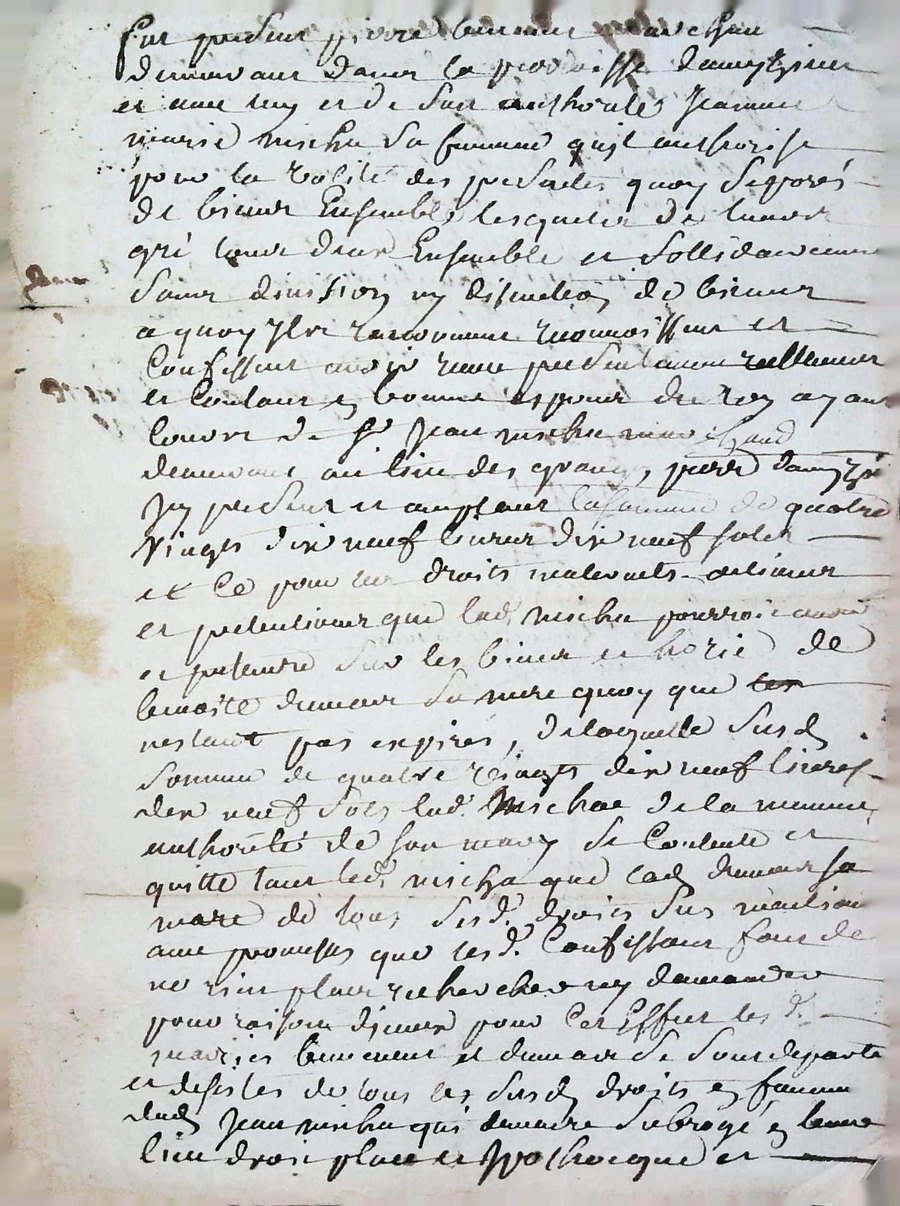 fut present pierre marchan
demeurant dans la parroisse
et avec luy et de son authorité Jeanne
marie micha sa femme quil authorise
pour la validité des presentes quoy separés
de biens Ensemble lesquels de leurs
gré tous deux Ensemble et sollidairement
sans division ny distinction de biens
a quoy ils renoncent reconnoissent et
Confessent avoir receu presentement reellement
et Contant en bonnes espesses du roy ayant
cours de Sr Jean micha marchand
demeurant au lieu des granges,
Icy present et acceptant la somme de quatre
vingts dix neuf livres dix neuf sols
et Ce pour les droits maternels actions
et pretentions que lad. micha pourroit avoir
et pretendre sur les biens et hoirie de
benoite sa mere quoy que
nestant pas expirés, de laquelle susd
somme de quatre vingts dix neuf livres
dix neuf sols lad. micha de la mesme
authorité de son mary se Contente et
quitte tant led. micha que lad. sa
mere de tous susd. droits sus mention
avec promesses que lesd. Confessant font de
ne rien plus rechercher ny demander
pour raison diceux pour Cet Effect lesd.
mariés et se sont departis
et desistés de tous les susd droits en faveur
dud Jean micha qui demeure subrogé en leurs
lieu droit place et Hypothecque et